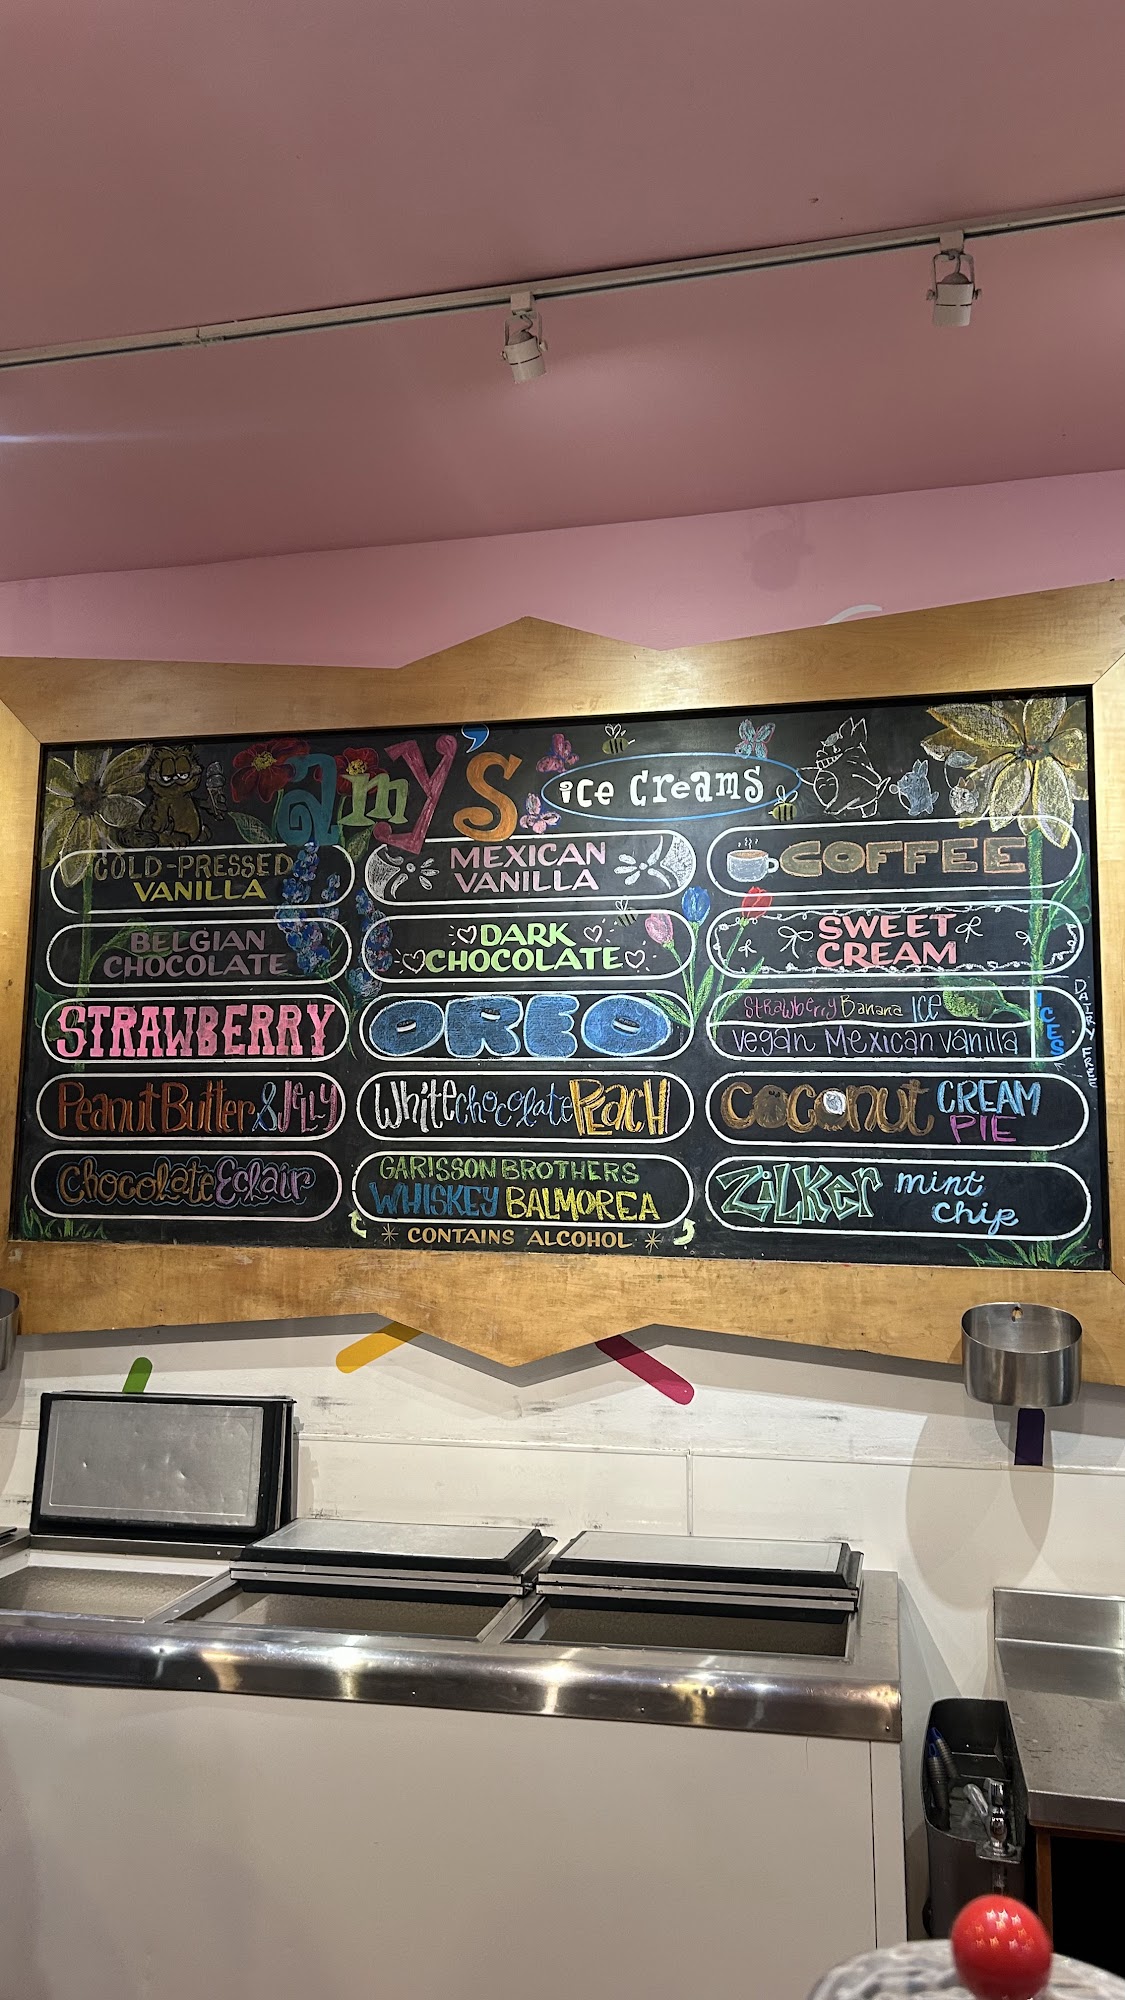 amy's
ice creams
COLD-PRESSED
VANILLA
MEXICAN
VANILLA
COFFEE
BELGIAN
CHOCOLATE
DARK
CHOCOLATE
SWEET
CREAM
STRAWBERRY
OREO
Strawberry Banana ICE
vegan Mexican vanilla
ICES
DAIRY FREE
Peanut Butter & Jelly
White chocolate PEACH
Coconut CREAM
PIE
Chocolate Eclair
GARISSON BROTHERS
WHISKEY BALMOREA
CONTAINS ALCOHOL
ZILKER mint
chip